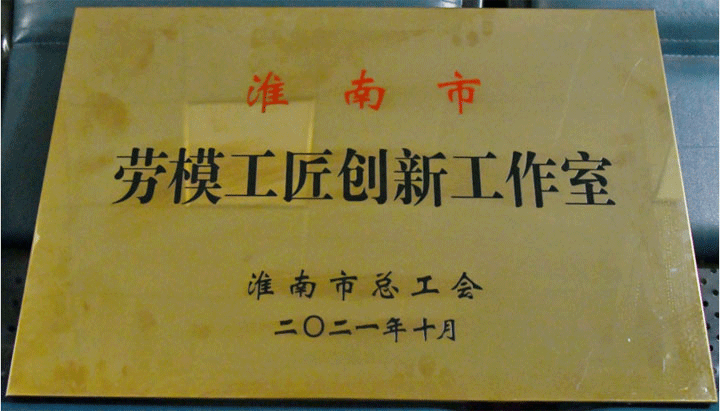 淮南市
劳模工匠创新工作室
淮南市总工会
二〇二一年十月